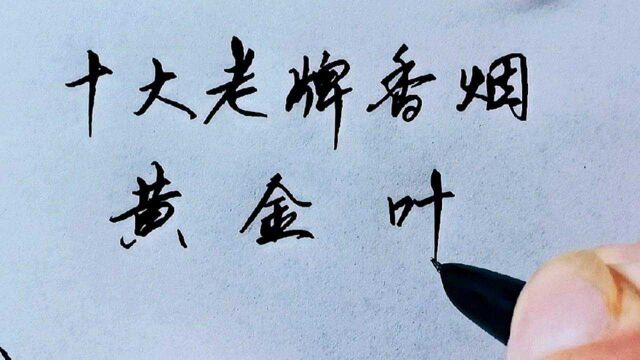 十大老牌香烟
黄金叶